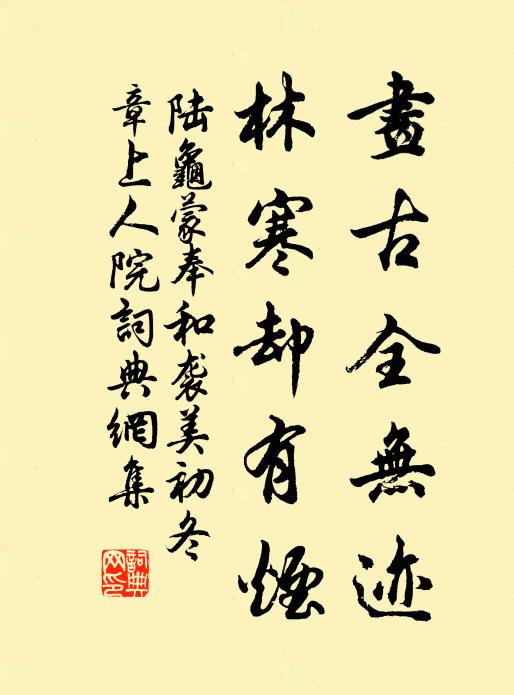 畫古全無迹
林寒却有煙
陆龜蒙奉和袭美初冬
章上人院詞典網集
詞典網印